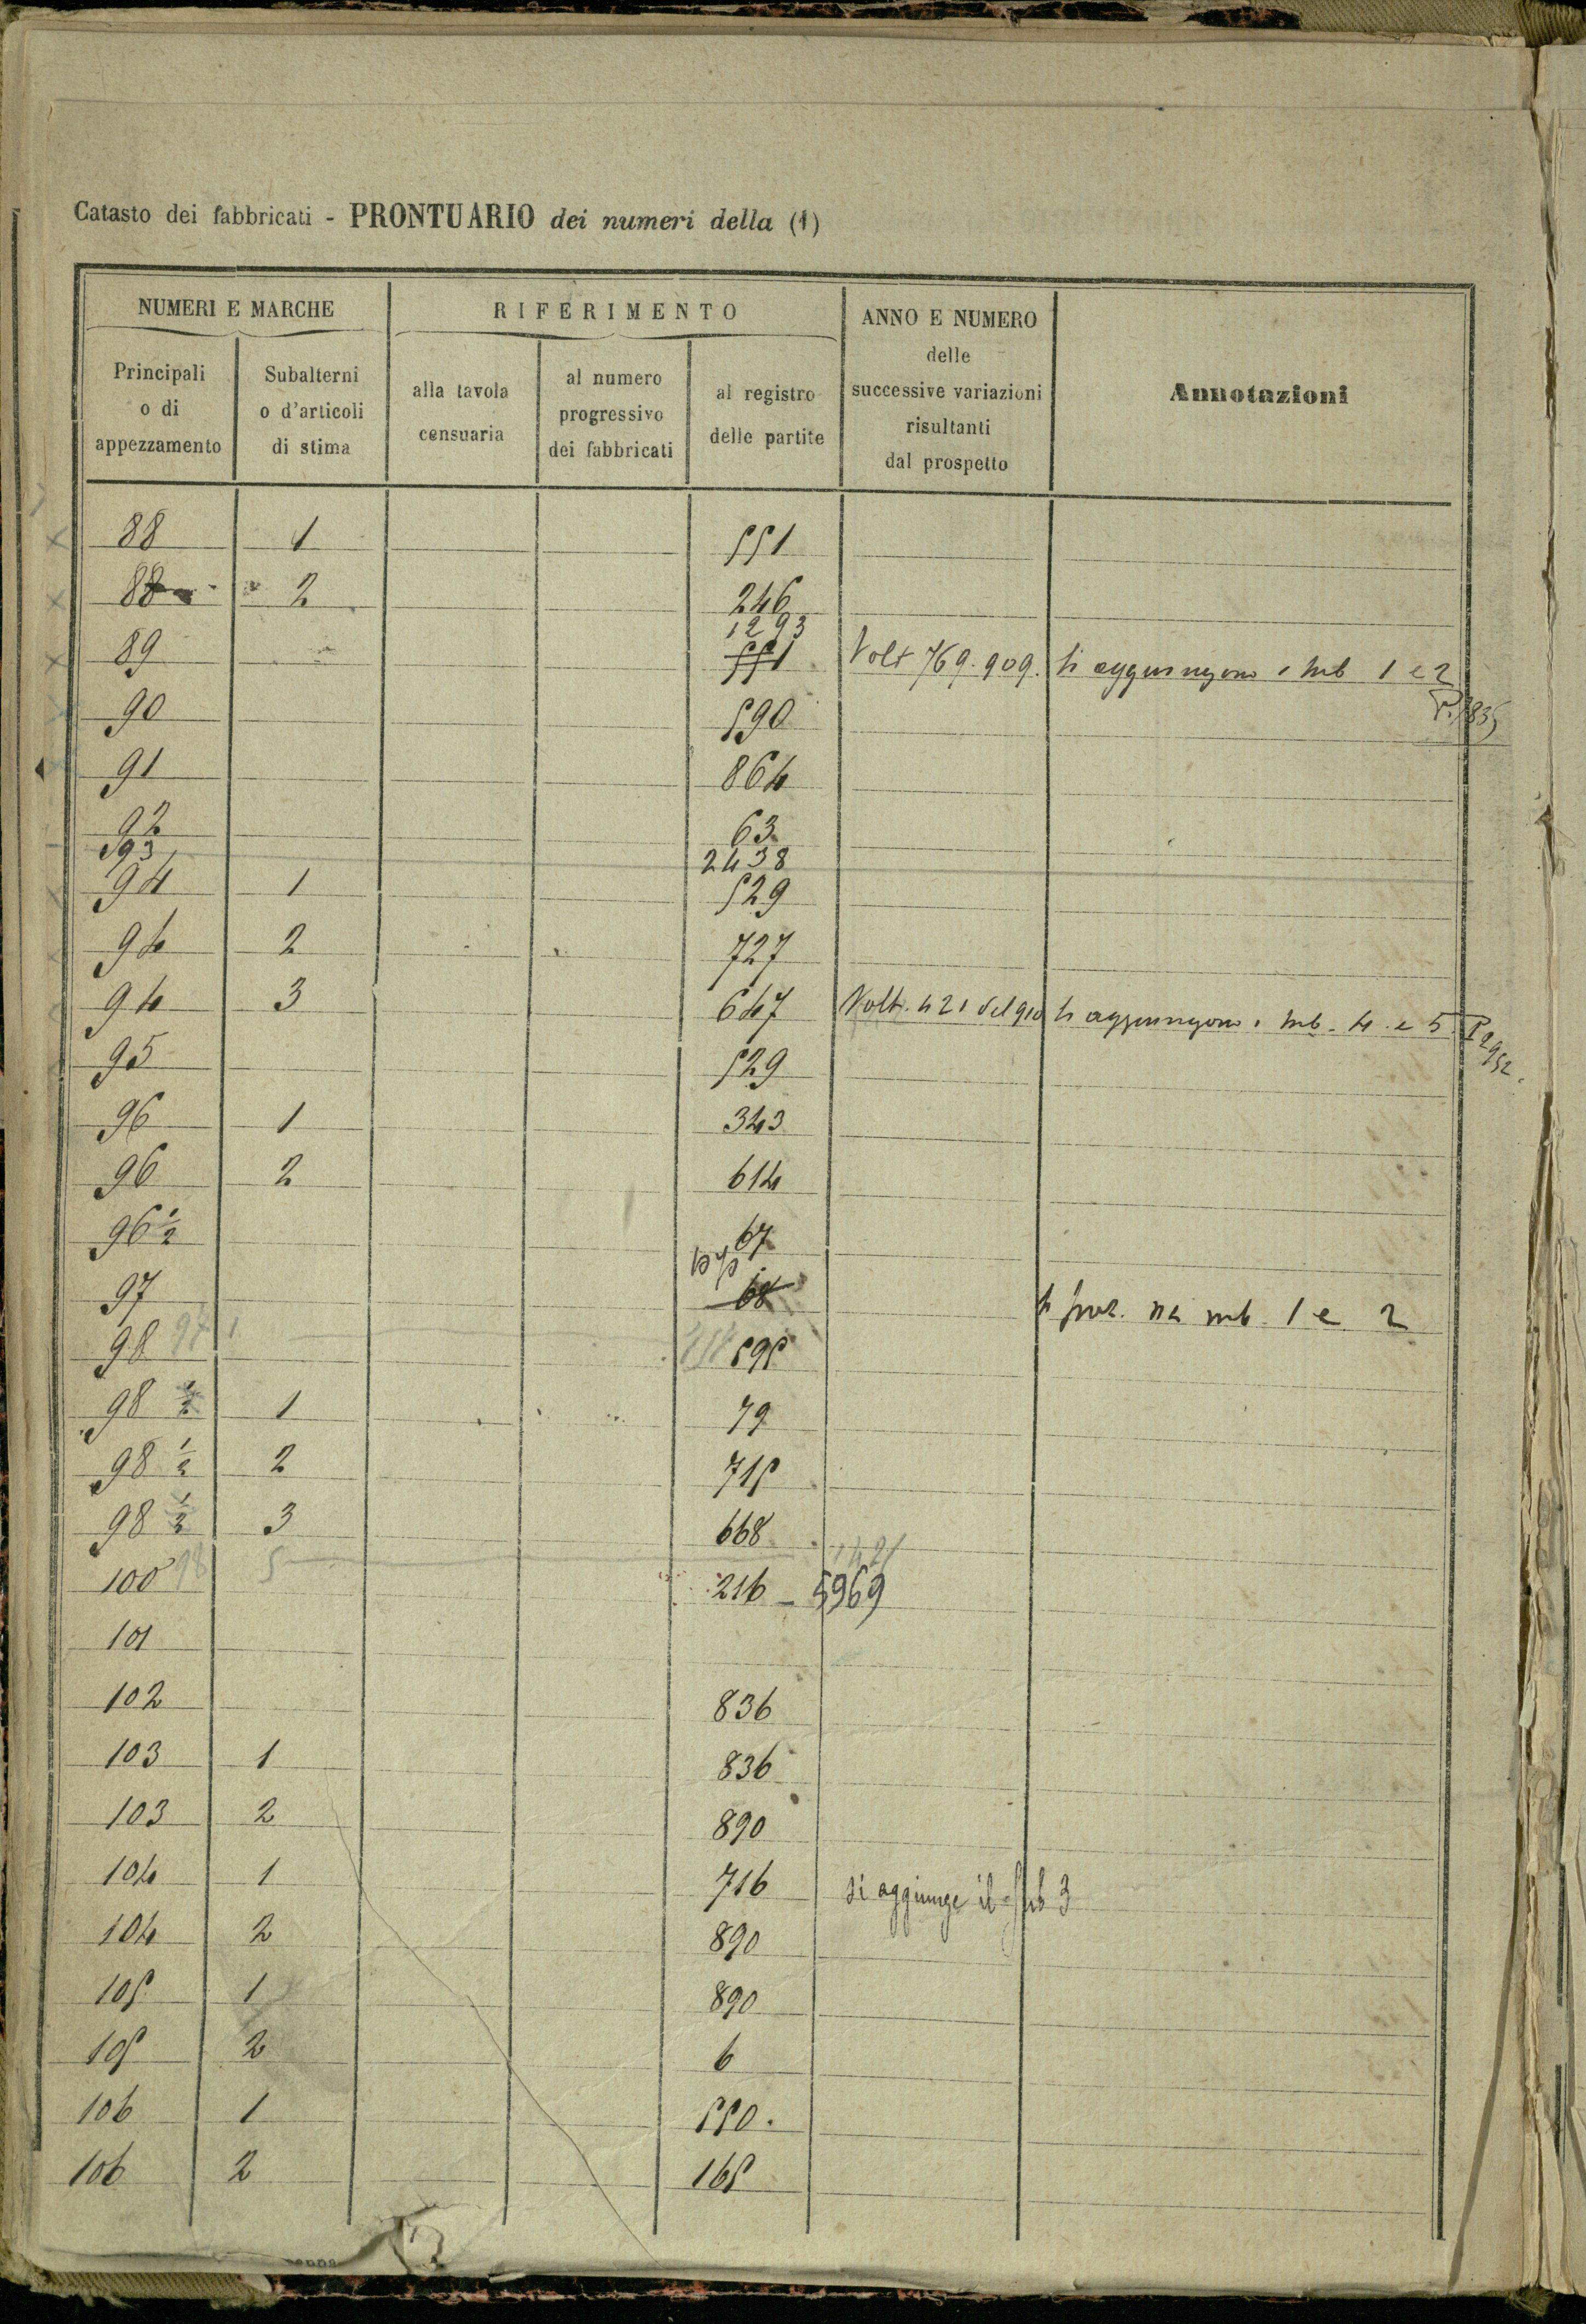 Catasto dei fabbricati - PRONTUARIO dei numeri della (1)
NUMERI E MARCHE
RIFERIMENTO
ANNO E NUMERO
delle
successive variazioni
risultanti
dal prospetto
Annotazioni
Principali
o di
appezzamento
Subalterni
o d'articoli
di stima
alla tavola
censuaria
al numero
progressivo
dei fabbricati
al registro
delle partite
88 1 551
88 2 246
1293
89 551 Volt 769.909. Si aggiungono i sub 1 e 2
90 590
91 864
92 63
93 2438
94 1 529
94 2 727
94 3 647 Volt. 421 del 910 Si aggiungono i sub. 4 e 5 P 2952
95 529
96 1 343
96 2 614
96 1/2 67
97 68 sub. 1 e 2
98 595
98 1/2 1 79
98 1/2 2 715
98 1/2 3 668
100 216 - 5969
101
102 836
103 1 836
103 2 890
104 1 716 si aggiunge il sub 3
104 2 890
105 1 890
105 2 6
106 1 550.
106 2 165